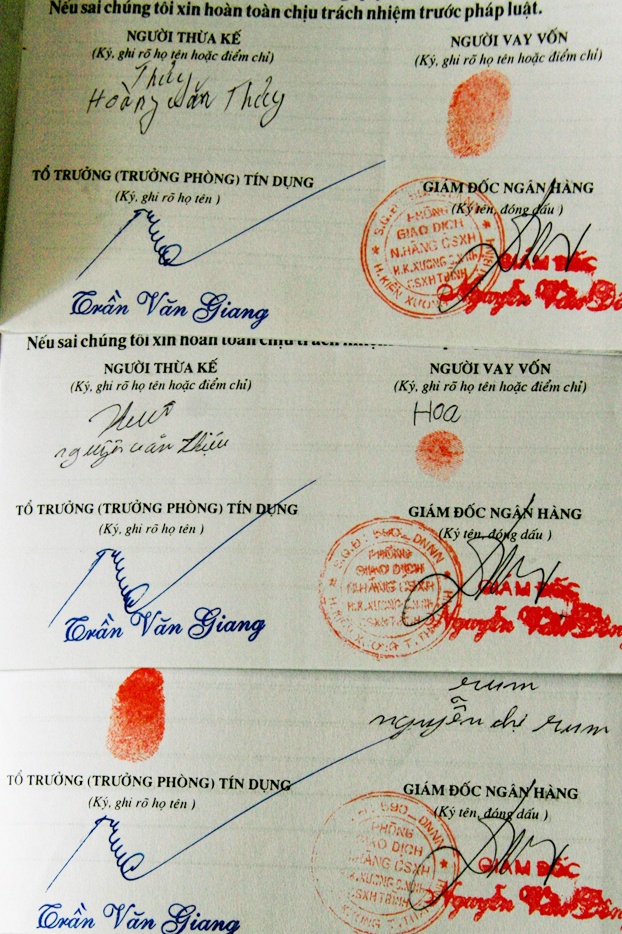 Nếu sai chúng tôi xin hoàn toàn chịu trách nhiệm trước pháp luật.
NGƯỜI THỪA KẾ
(Ký, ghi rõ họ tên hoặc điểm chỉ)
Thủy
Hoàng văn Thủy
NGƯỜI VAY VỐN
(Ký, ghi rõ họ tên hoặc điểm chỉ)
TỔ TRƯỞNG (TRƯỞNG PHÒNG) TÍN DỤNG
(Ký, ghi rõ họ tên )
Trần Văn Giang
GIÁM ĐỐC NGÂN HÀNG
(Ký tên, đóng dấu )
PHÒNG
GIAO DỊCH
N.HÀNG CSXH
GIÁM ĐỐC
Nguyễn Văn
Nếu sai chúng tôi xin hoàn toàn chịu trách
NGƯỜI THỪA KẾ
(Ký, ghi rõ họ tên hoặc điểm chỉ)
nguyễn văn
NGƯỜI VAY VỐN
(Ký, ghi rõ họ tên hoặc điểm chỉ)
Hoa
TỔ TRƯỞNG (TRƯỞNG PHÒNG) TÍN DỤNG
(Ký, ghi rõ họ tên )
Trần Văn Giang
GIÁM ĐỐC NGÂN HÀNG
(Ký tên, đóng dấu )
PHÒNG
GIAO DỊCH
N.HÀNG CSXH
GIÁM ĐỐC
Nguyễn Văn
rum
nguyễn thị rum
TỔ TRƯỞNG (TRƯỞNG PHÒNG) TÍN DỤNG
(Ký, ghi rõ họ tên )
Trần Văn Giang
GIÁM ĐỐC NGÂN HÀNG
(Ký tên, đóng dấu )
PHÒNG
GIAO DỊCH
HÀNG CSXH
GIÁM ĐỐC
Nguyễn Văn